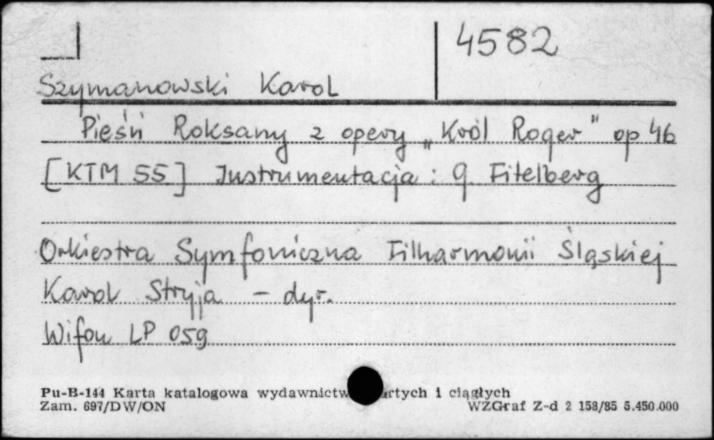 4582
Szymanowski Karol
Pieśń Roksany z opery „Król Roger" op 46
[KTM 55] Instrumentacja : G. Fitelberg
Orkiestra Symfoniczna Filharmonii Śląskiej
Karol Stryja - dyr.
Wifon LP 059
Pu-B-144 Karta katalogowa wydawnictw rtych i ciągłych
Zam. 697/DW/ON WZGraf Z-d 2 158/85 5.450.000